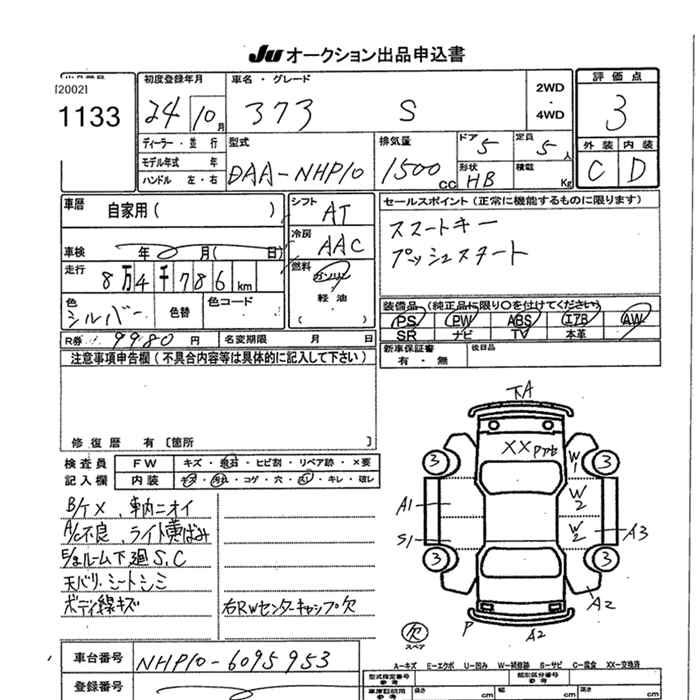 JU オークション出品申込書
[2002]
1133
初度登録年月
24 10月
車名・グレード
373 S
2WD
・
4WD
評価点
3
ディーラー・並行
モデル年式 年
ハンドル 左・右
型式
DAA-NHP10
排気量
1500cc
ドア 5
定員 5人
形状 HB
積載 Kg
外装 内装
C D
車歴 自家用( )
シフト AT
セールスポイント(正常に機能するものに限ります)
スマートキー
プッシュスタート
車検 年 月( 日)
冷房 AAC
走行 8万4千786km
燃料 ガソリン
軽油
( )
色 シルバー
色替
色コード
装備品(純正品に限り○を付けてください)
PS PW ABS エアB AW
SR ナビ TV 本革
R券 9980円
名変期限 月 日
新車保証書
有・無
後日品
注意事項申告欄(不具合内容等は具体的に記入して下さい)
修復歴 有[箇所 ]
検査員
記入欄
FW キズ・飛石・ヒビ割・リペア跡・×要
内装 コゲ・穴・キレ・破レ
B/ケX、車内ニオイ
A/C不良、ライト黄ばみ
E/gルーム下廻S.C
天バリ、シートシミ
ボディ線キズ
右RWセンターキャップ欠
XX
3 3
3 3
W1
W2
W2
A1
S1
A3
A2
P
A2
欠
スペア
A-キズ E-エクボ U-凹み W-補修跡 S-サビ C-腐食 XX-交換済
車台番号 NHP10-6095953
登録番号
型式指定番号
参考
類別区分番号
参考
長さ cm
幅 cm
高さ cm